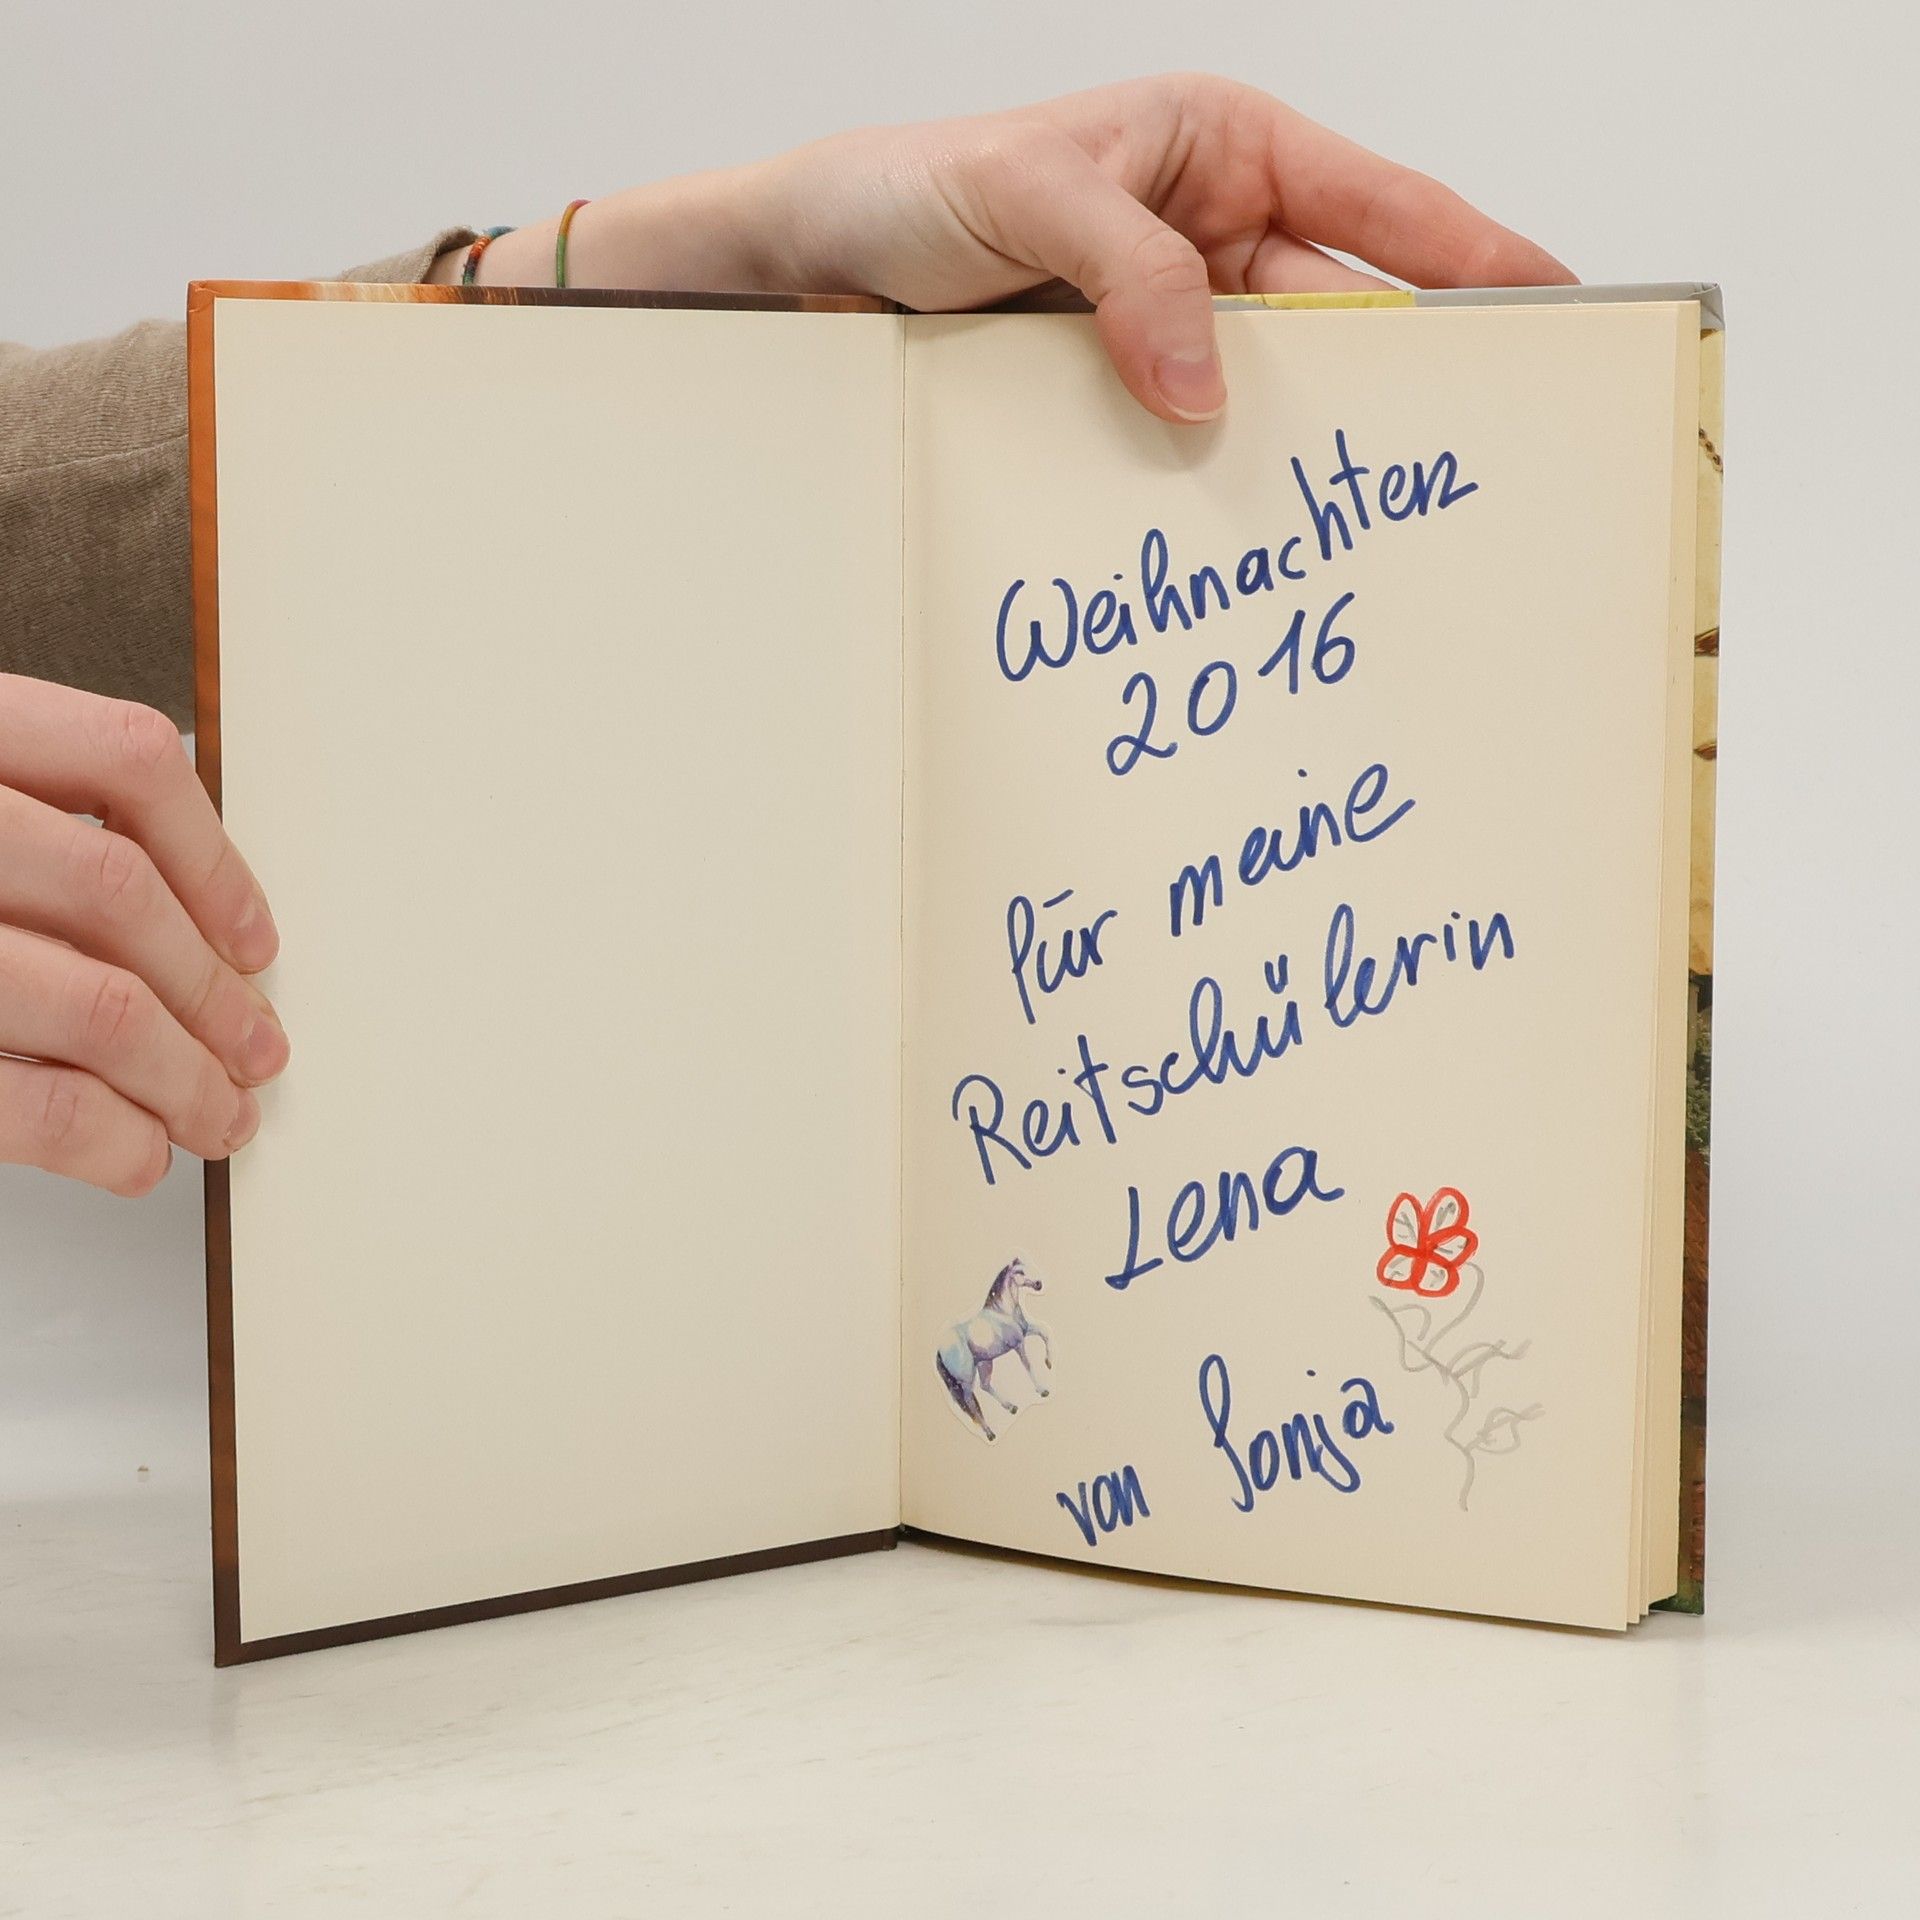 Weihnachten
2016
für meine
Reitschülerin
Lena
von Sonja